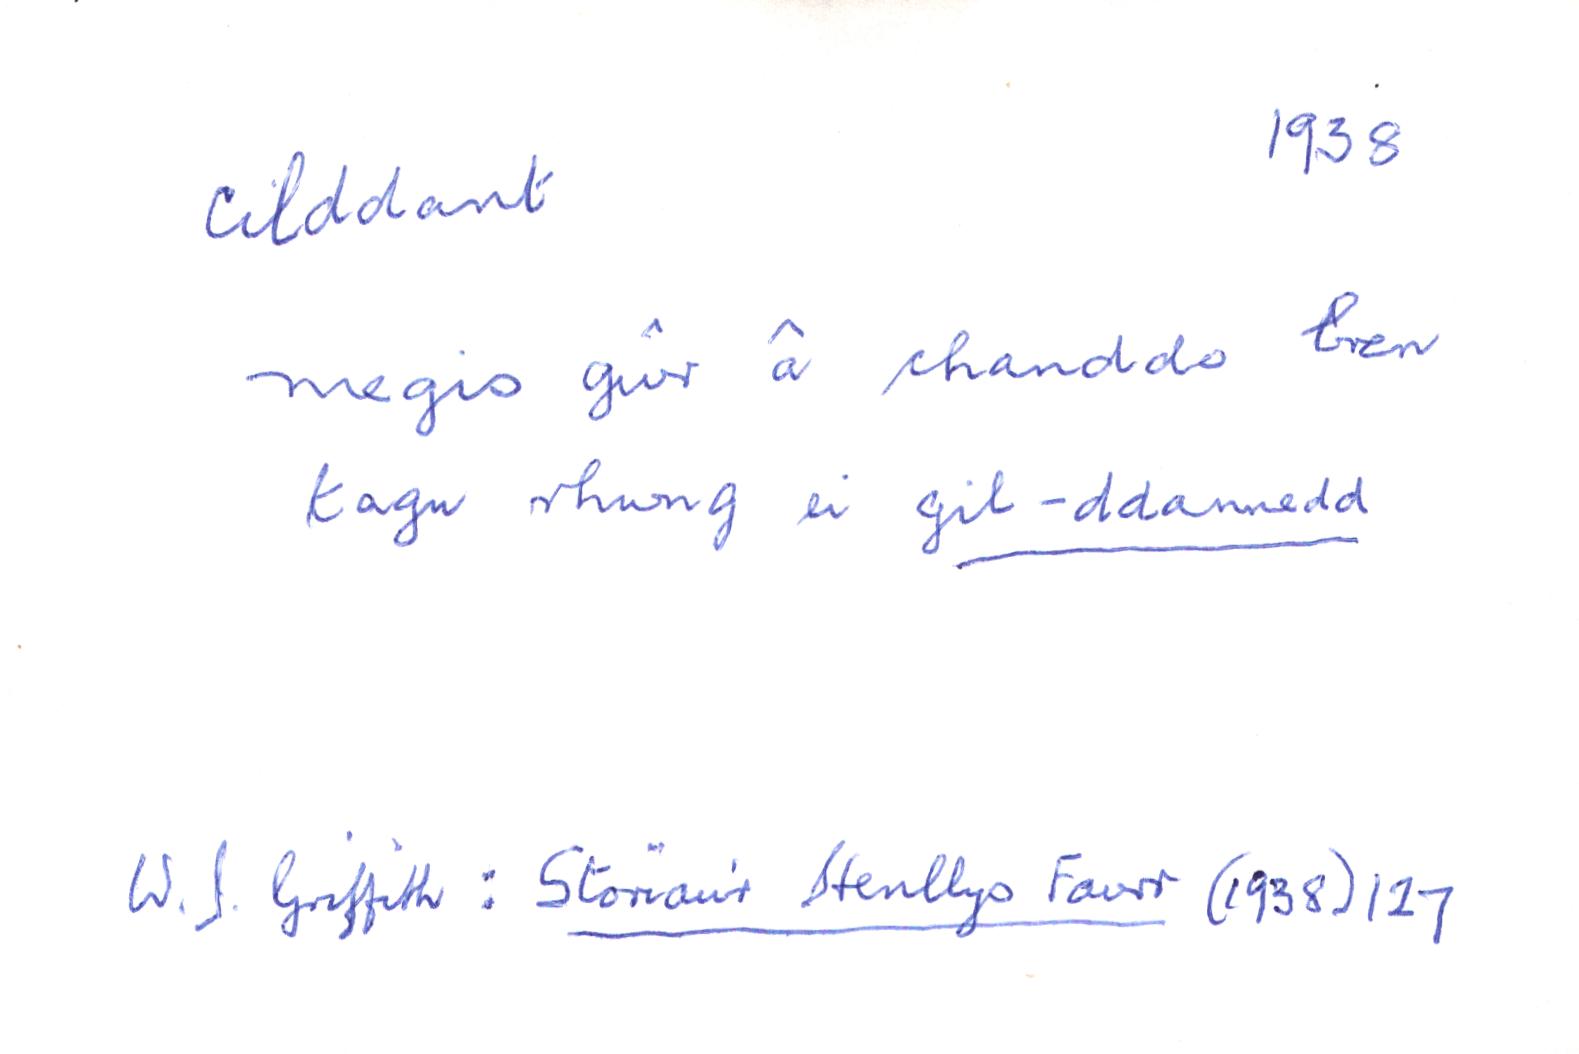 1938
cilddant
megis gŵr â chanddo bren
tagu rhwng ei gil-ddannedd
W. J. Griffith : Storïau'r Henllys Fawr (1938) 127